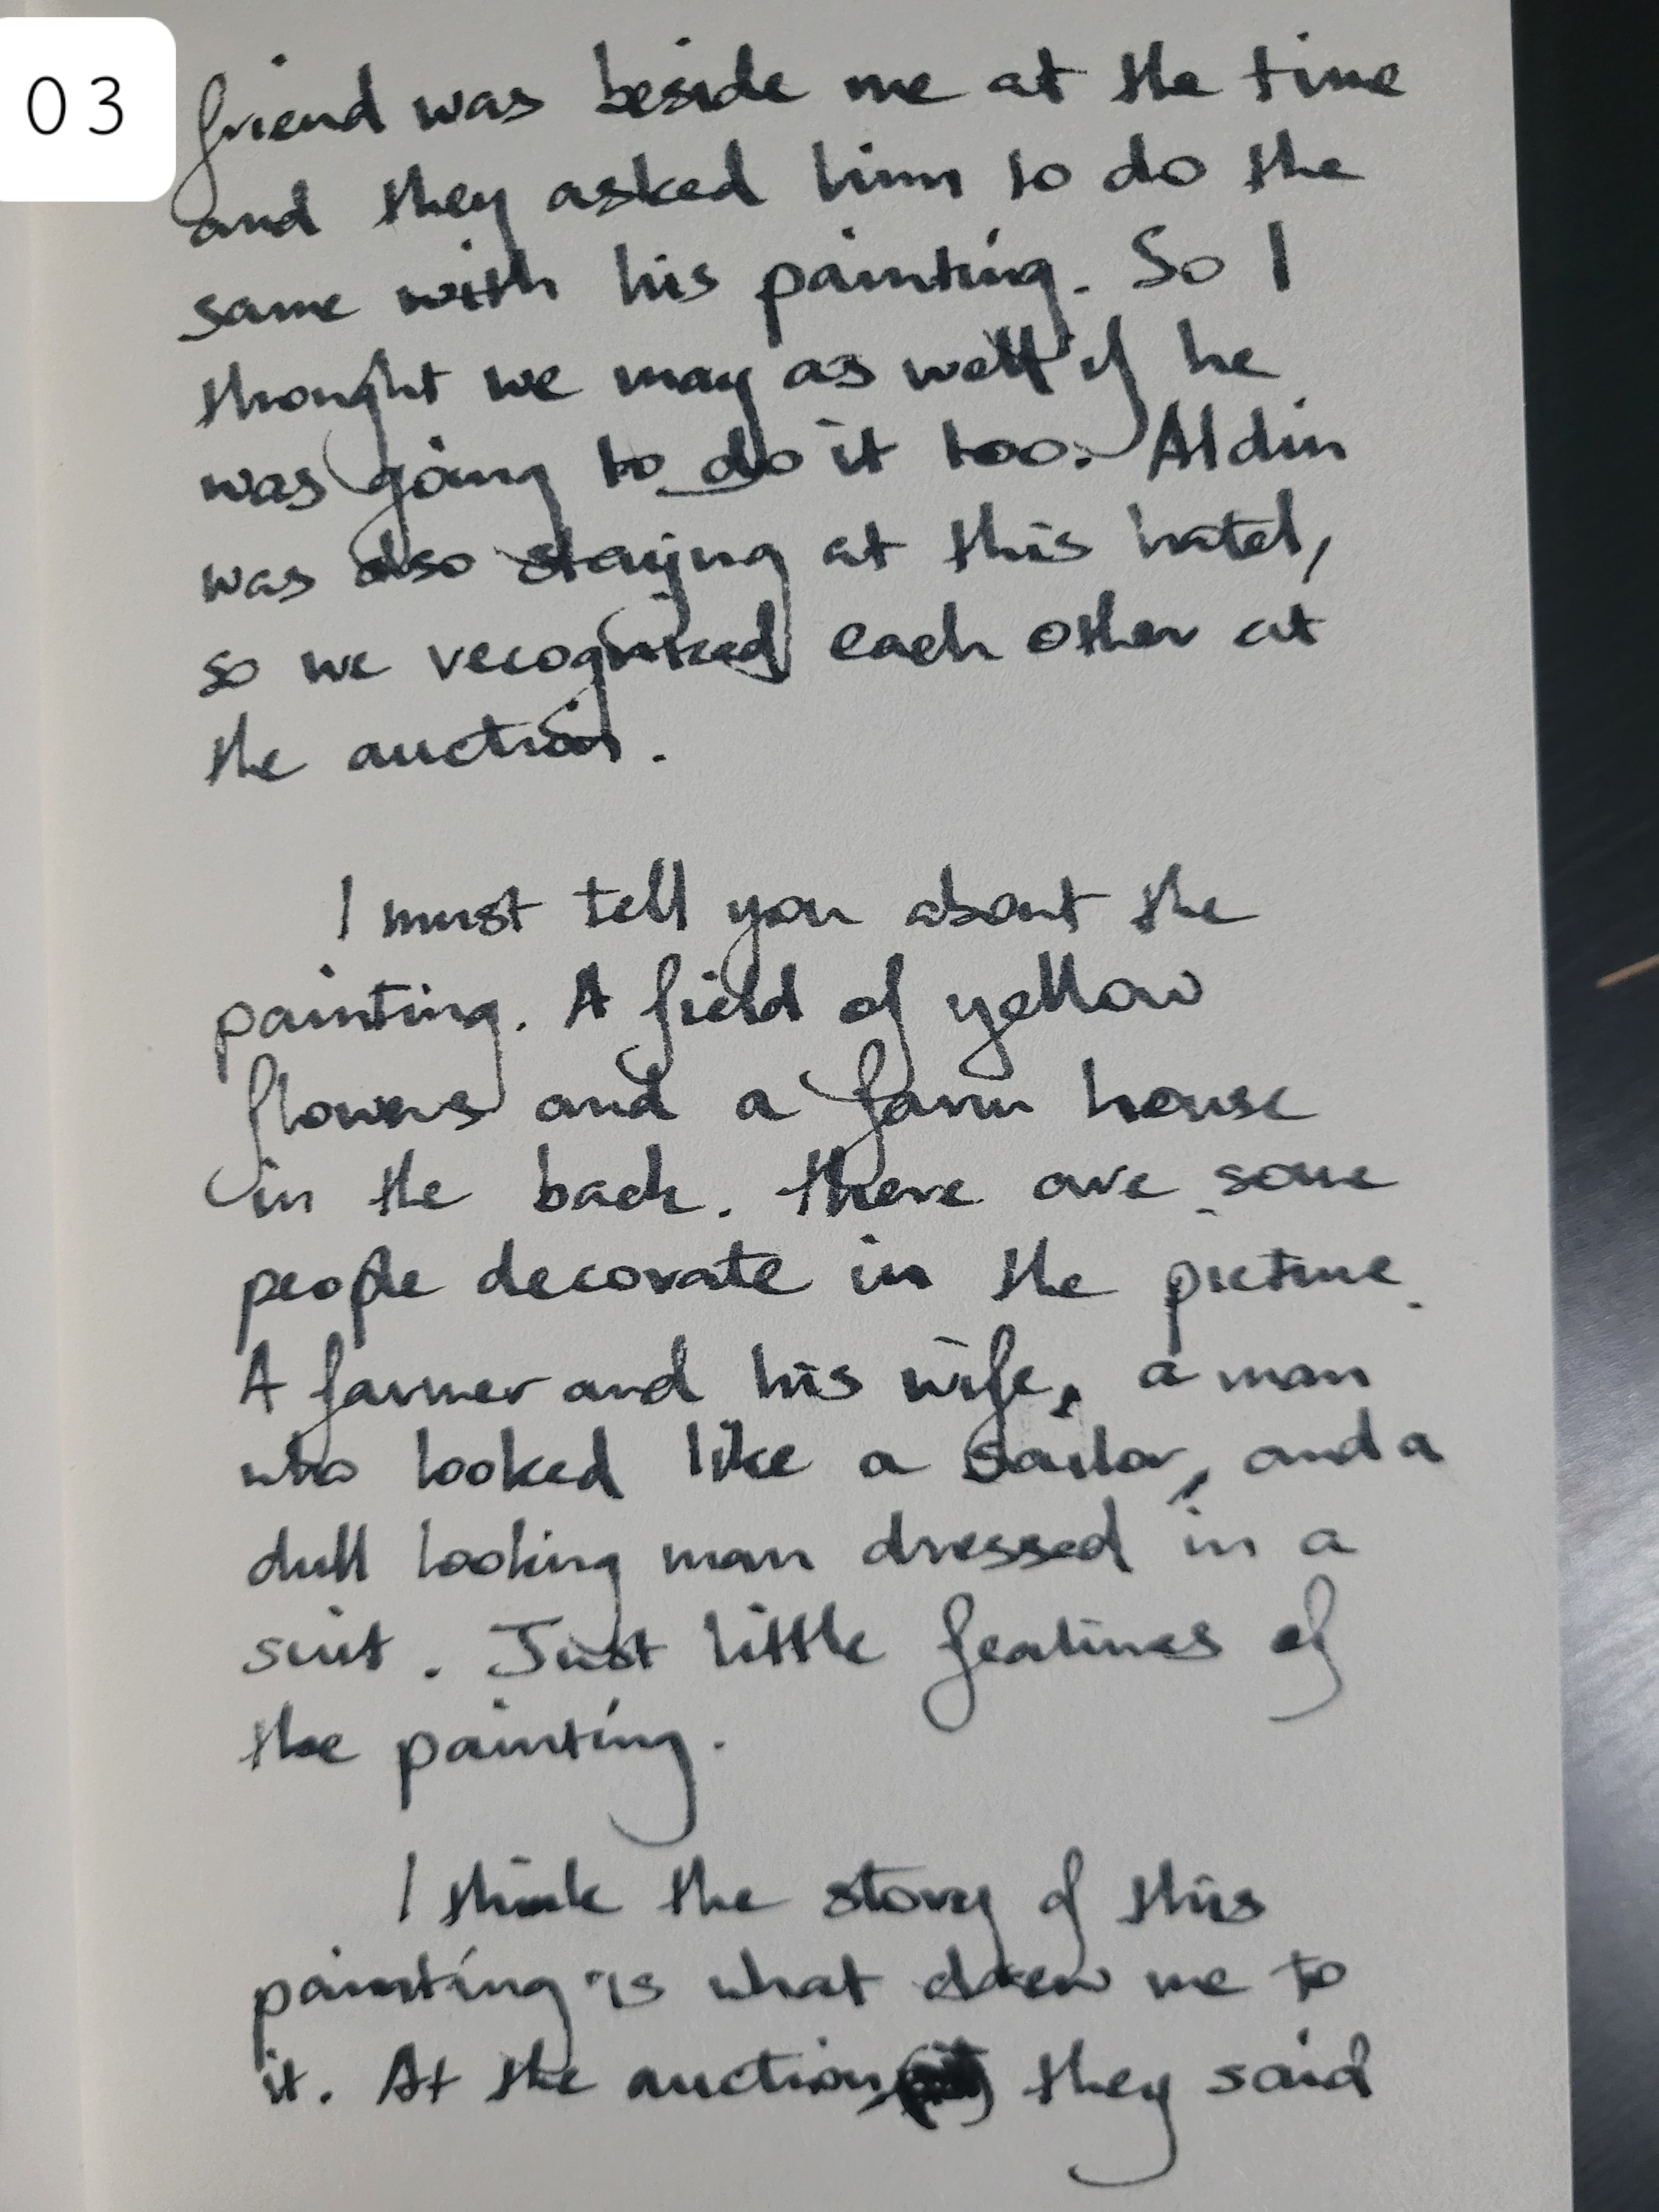 03
friend was beside me at the time
and they asked him to do the
same with his painting. So I
thought we may as well if he
was going to do it too. Aldin
was also staying at this hotel,
so we recognized each other at
the auction.
I must tell you about the
painting. A field of yellow
flowers and a farm house
in the back. There are some
people decorate in the picture.
A farmer and his wife, a man
who looked like a sailor, and a
dull looking man dressed in a
suit. Just little features of
the painting.
I think the story of this
painting is what drew me to
it. At the auction, they said